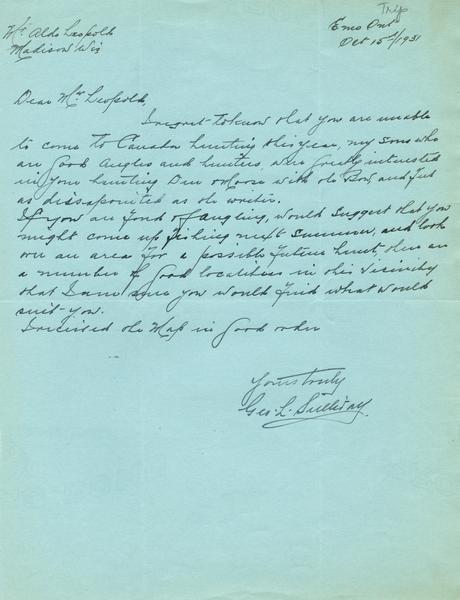 Trip
Mr Aldo Leopold
Madison Wis
Emo Ont
Oct 15th/1931
Dear Mr Leopold,
I regret to know that you are unable
to come to Canada hunting this year, my sons who
are Good Anglers and hunters, were greatly interested
in your hunting Deer or Moose with the Bow, and feel
as dissapointed as the writer.
If you are fond of angling, would suggest that you
might come up fishing next summer, and look
over an area for a possible future hunt, there are
a number of Good localities in this vicinity
that I am sure you would find what would
suit you.
I received the Map in Good order
Yours truly
Geo. L.